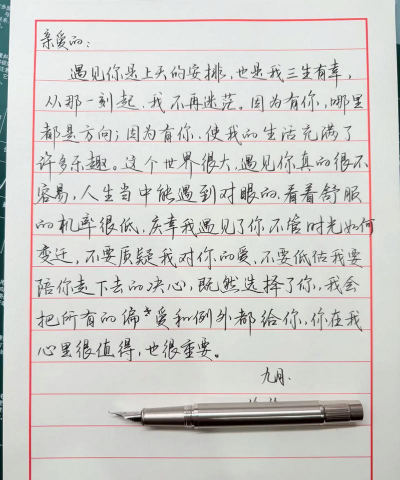 亲爱的：
遇见你是上天的安排，也是我三生有幸，
从那一刻起，我不再迷茫。因为有你，哪里
都是方向；因为有你，使我的生活充满了
许多乐趣。这个世界很大，遇见你真的很不
容易，人生当中能遇到对眼的，看着舒服
的机率很低，庆幸我遇见了你，不管时光如何
变迁，不要质疑我对你的爱，不要低估我要
陪你走下去的决心，既然选择了你，我会
把所有的偏爱和例外都给你，你在我
心里很值得，也很重要。
九月.